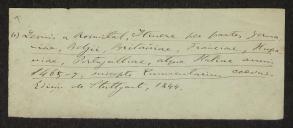 (1) Leonis a Rosmital, Itinere per partes Germa
niae, Belgii, Britaniae, Franciae, Hispa
niae, Portugalliae, atque Italiae anni
1465-7, suscepto Commentarium coevae.
Edim de Stuttgart, 1844.